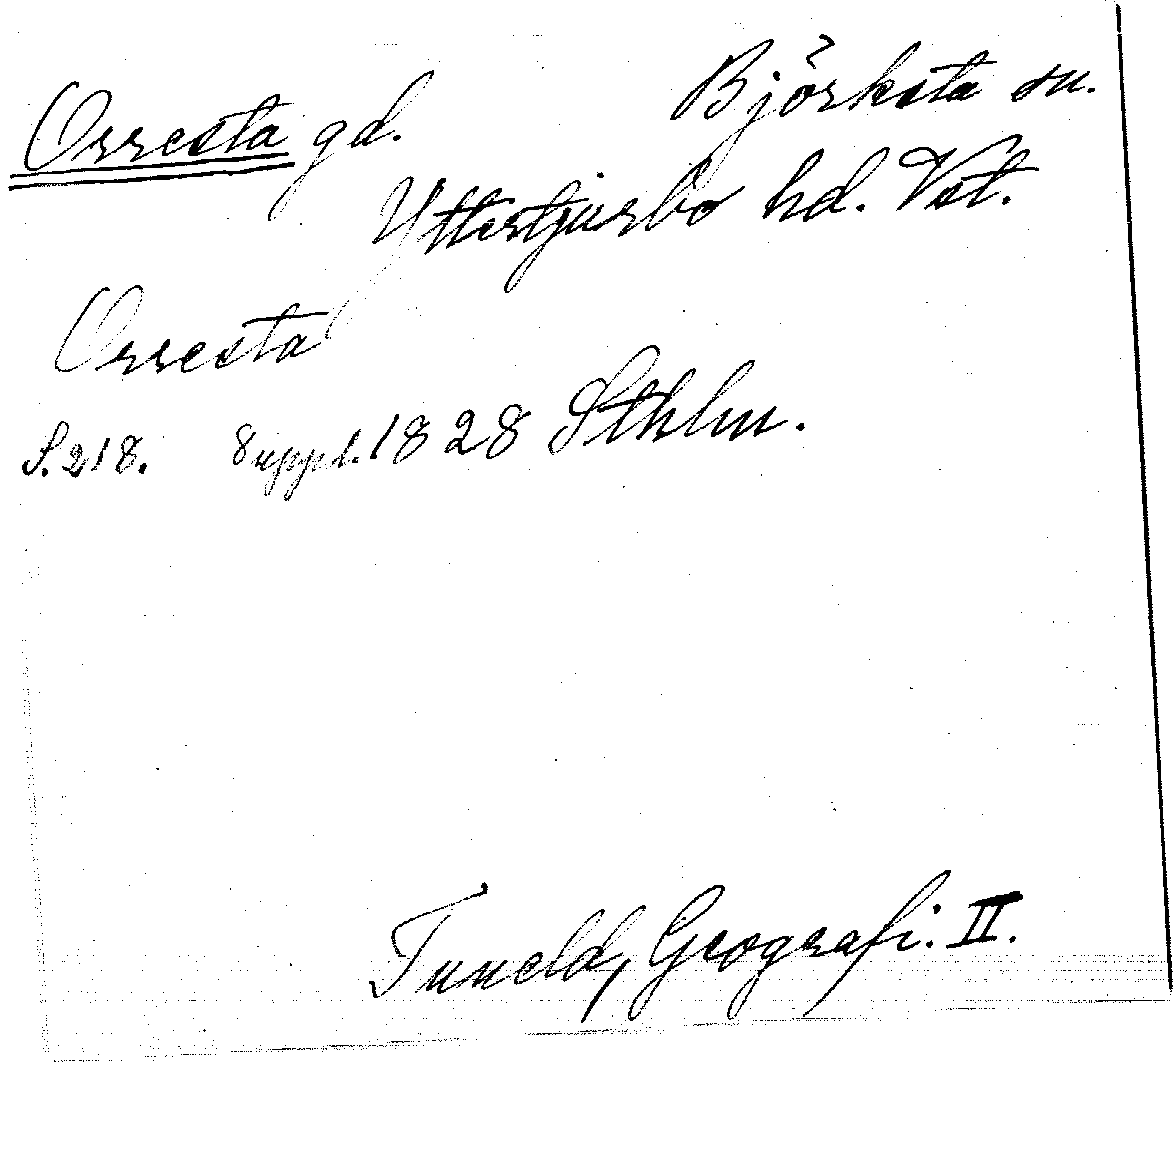 Orresta gd. Björksta sn.
Yttertjurbo hd. Vst.
Orresta
S. 218. Suppl. 1828 Sthlm.
Tuneld, Geografi. II.